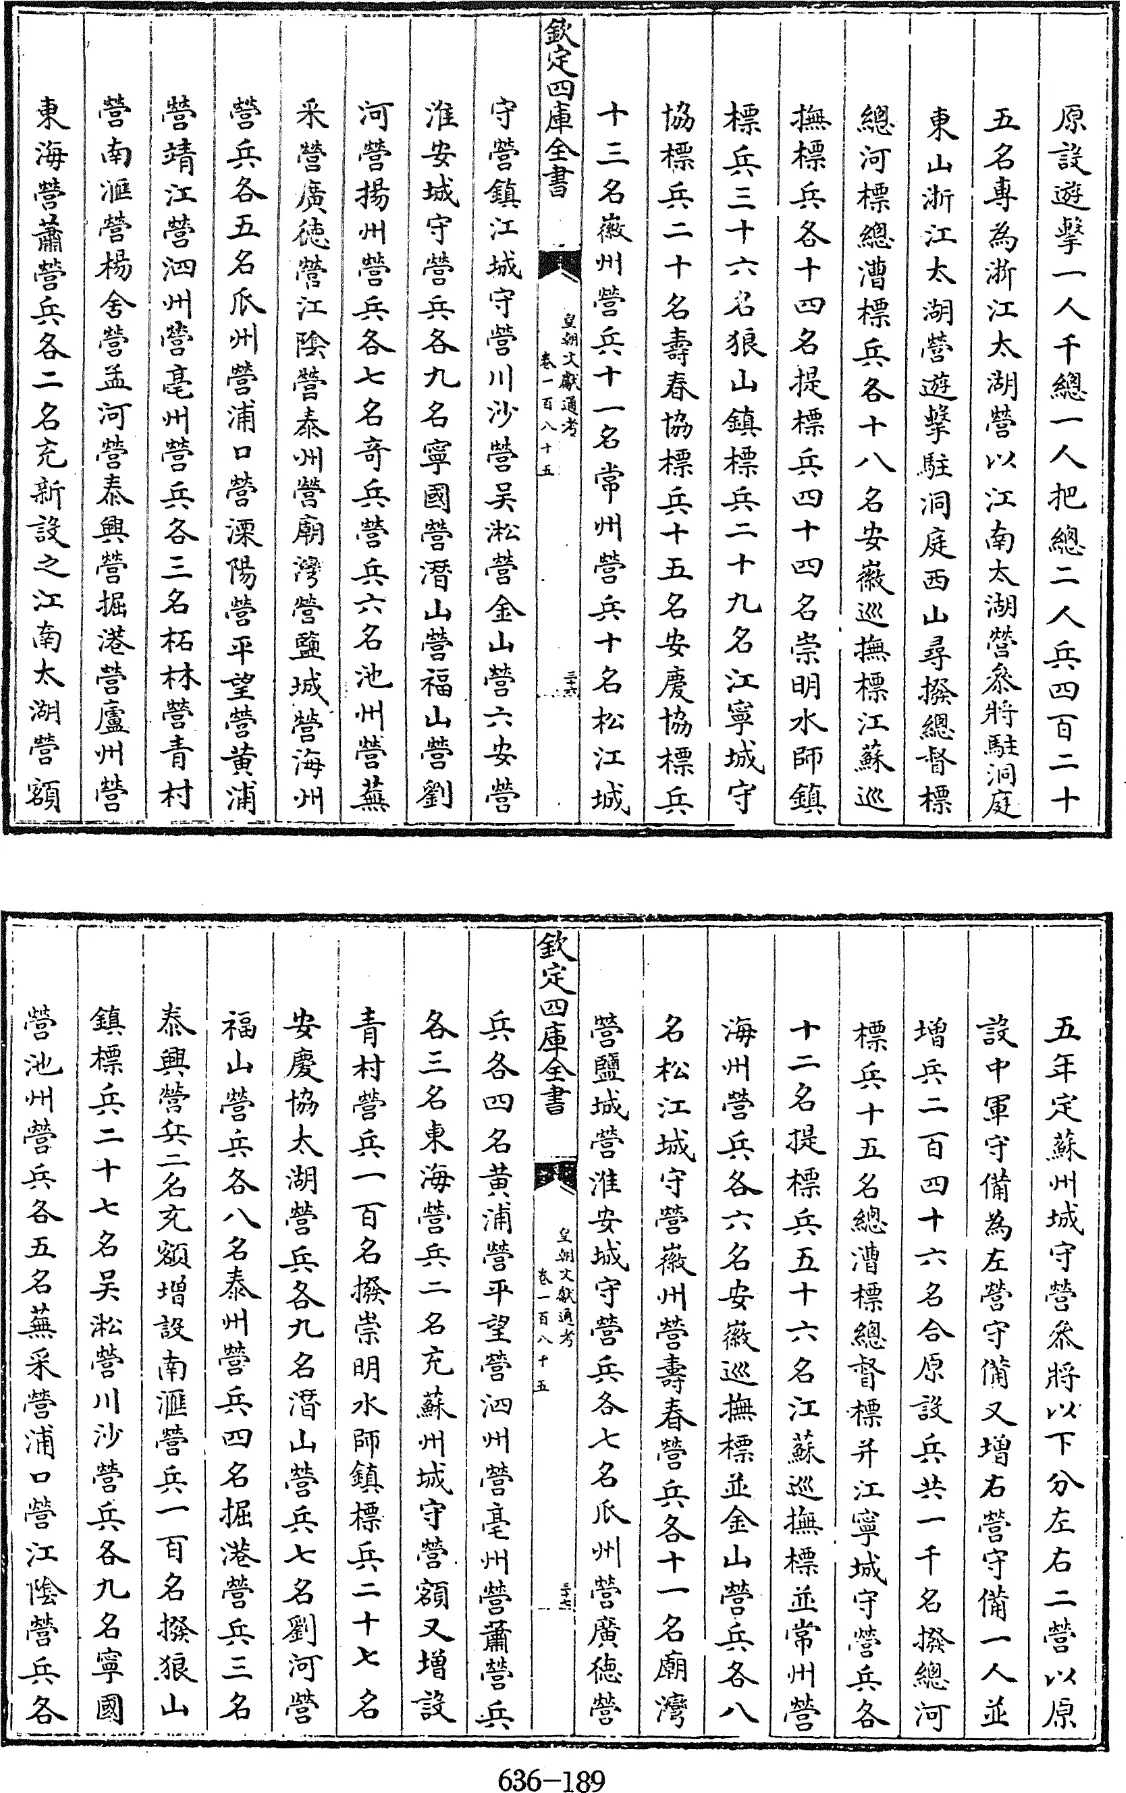 原設遊擊一人千總一人把總二人兵四百二十
五名專為浙江太湖營以江南太湖營叅將駐洞庭
東山浙江太湖營遊擊駐洞庭西山尋撥總督標
總河標總漕標兵各十八名安徽巡撫標江蘇巡
撫標兵各十四名提標兵四十四名崇明水師鎮
標兵三十六名狼山鎮標兵二十九名江寧城守
協標兵二十名壽春協標兵十五名安慶協標兵
十三名徽州營兵十一名常州營兵十名松江城
欽定四庫全書
皇朝文獻通考
卷一百八十五
三十六
守營鎮江城守營川沙營吳淞營金山營六安營
淮安城守營兵各九名寧國營潛山營福山營劉
河營揚州營兵各七名奇兵營兵六名池州營蕪
采營廣德營江陰營泰州營廟灣營鹽城營海州
營兵各五名瓜州營浦口營溧陽營平望營黃浦
營靖江營泗州營亳州營兵各三名柘林營青村
營南滙營楊舍營孟河營泰興營掘港營廬州營
東海營蕭營兵各二名充新設之江南太湖營額
五年定蘇州城守營叅將以下分左右二營以原
設中軍守備為左營守備又增右營守備一人並
增兵二百四十六名合原設兵共一千名撥總河
標兵十五名總漕標總督標并江寧城守營兵各
十二名提標兵五十六名江蘇巡撫標並常州營
海州營兵各六名安徽巡撫標並金山營兵各八
名松江城守營徽州營壽春營兵各十一名廟灣
營鹽城營淮安城守營兵各七名瓜州營廣德營
欽定四庫全書
皇朝文獻通考
卷一百八十五
三十七
兵各四名黃浦營平望營泗州營亳州營蕭營兵
各三名東海營兵二名充蘇州城守營額又增設
青村營兵一百名撥崇明水師鎮標兵二十七名
安慶協太湖營兵各九名潛山營兵七名劉河營
福山營兵各八名泰州營兵四名掘港營兵三名
泰興營兵二名充額增設南滙營兵一百名撥狼山
鎮標兵二十七名吳淞營川沙營兵各九名寧國
營池州營兵各五名蕪采營浦口營江陰營兵各
636-189